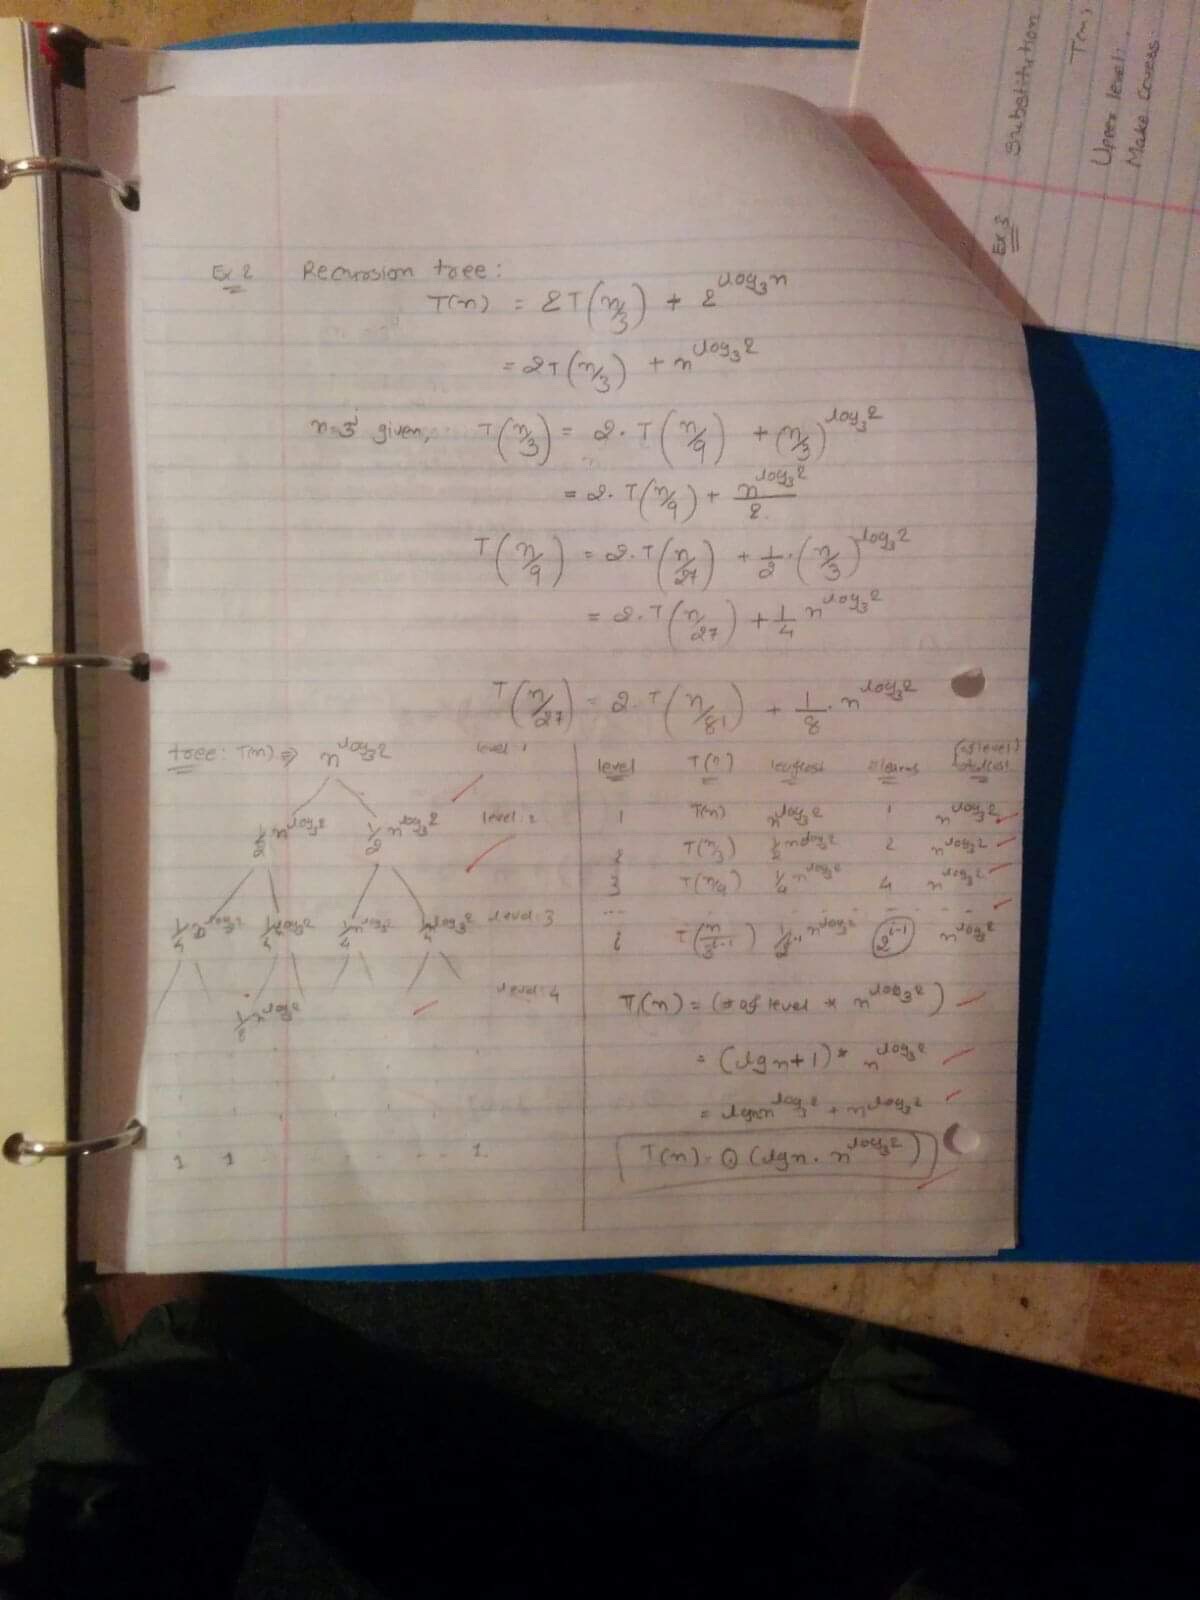 Ex 2 Recursion tree:
T(n) = 2T(n/3) + 2^log₃n
= 2T(n/3) + n^log₃2
n=3ⁱ given, T(n/3) = 2. T(n/9) + (n/3)^log₃2
= 2. T(n/9) + n^log₃2/2
T(n/9) = 2. T(n/27) + 1/2 . (n/3)^log₃2
= 2. T(n/27) + 1/4 n^log₃2
T(n/27) = 2. T(n/81) + 1/8 . n^log₃2
tree: T(n) ⇒ n^log₃2 level: 1
1/2 n^log₃2 1/2 n^log₃2 level: 2
1/4 n^log₃2 1/4 n^log₃2 1/4 n^log₃2 1/4 n^log₃2 level: 3
1/8 n^log₃2 level: 4
1 1 - - - - - 1.
level T(n) leafcost
1 T(n) n^log₃2 1 n^log₃2
2 T(n/3) 1/2 n^log₃2 2 n^log₃2
3 T(n/9) 1/4 n^log₃2 4 n^log₃2
...
i T(n/3^i-1) 1/2^i-1 n^log₃2 2^i-1 n^log₃2
T(n) = (# of level * n^log₃2)
= (lgn+1) * n^log₃2
= lgn n^log₃2 + n^log₃2
T(n) = Θ (lgn . n^log₃2)
Ex 3 Substitution
Make